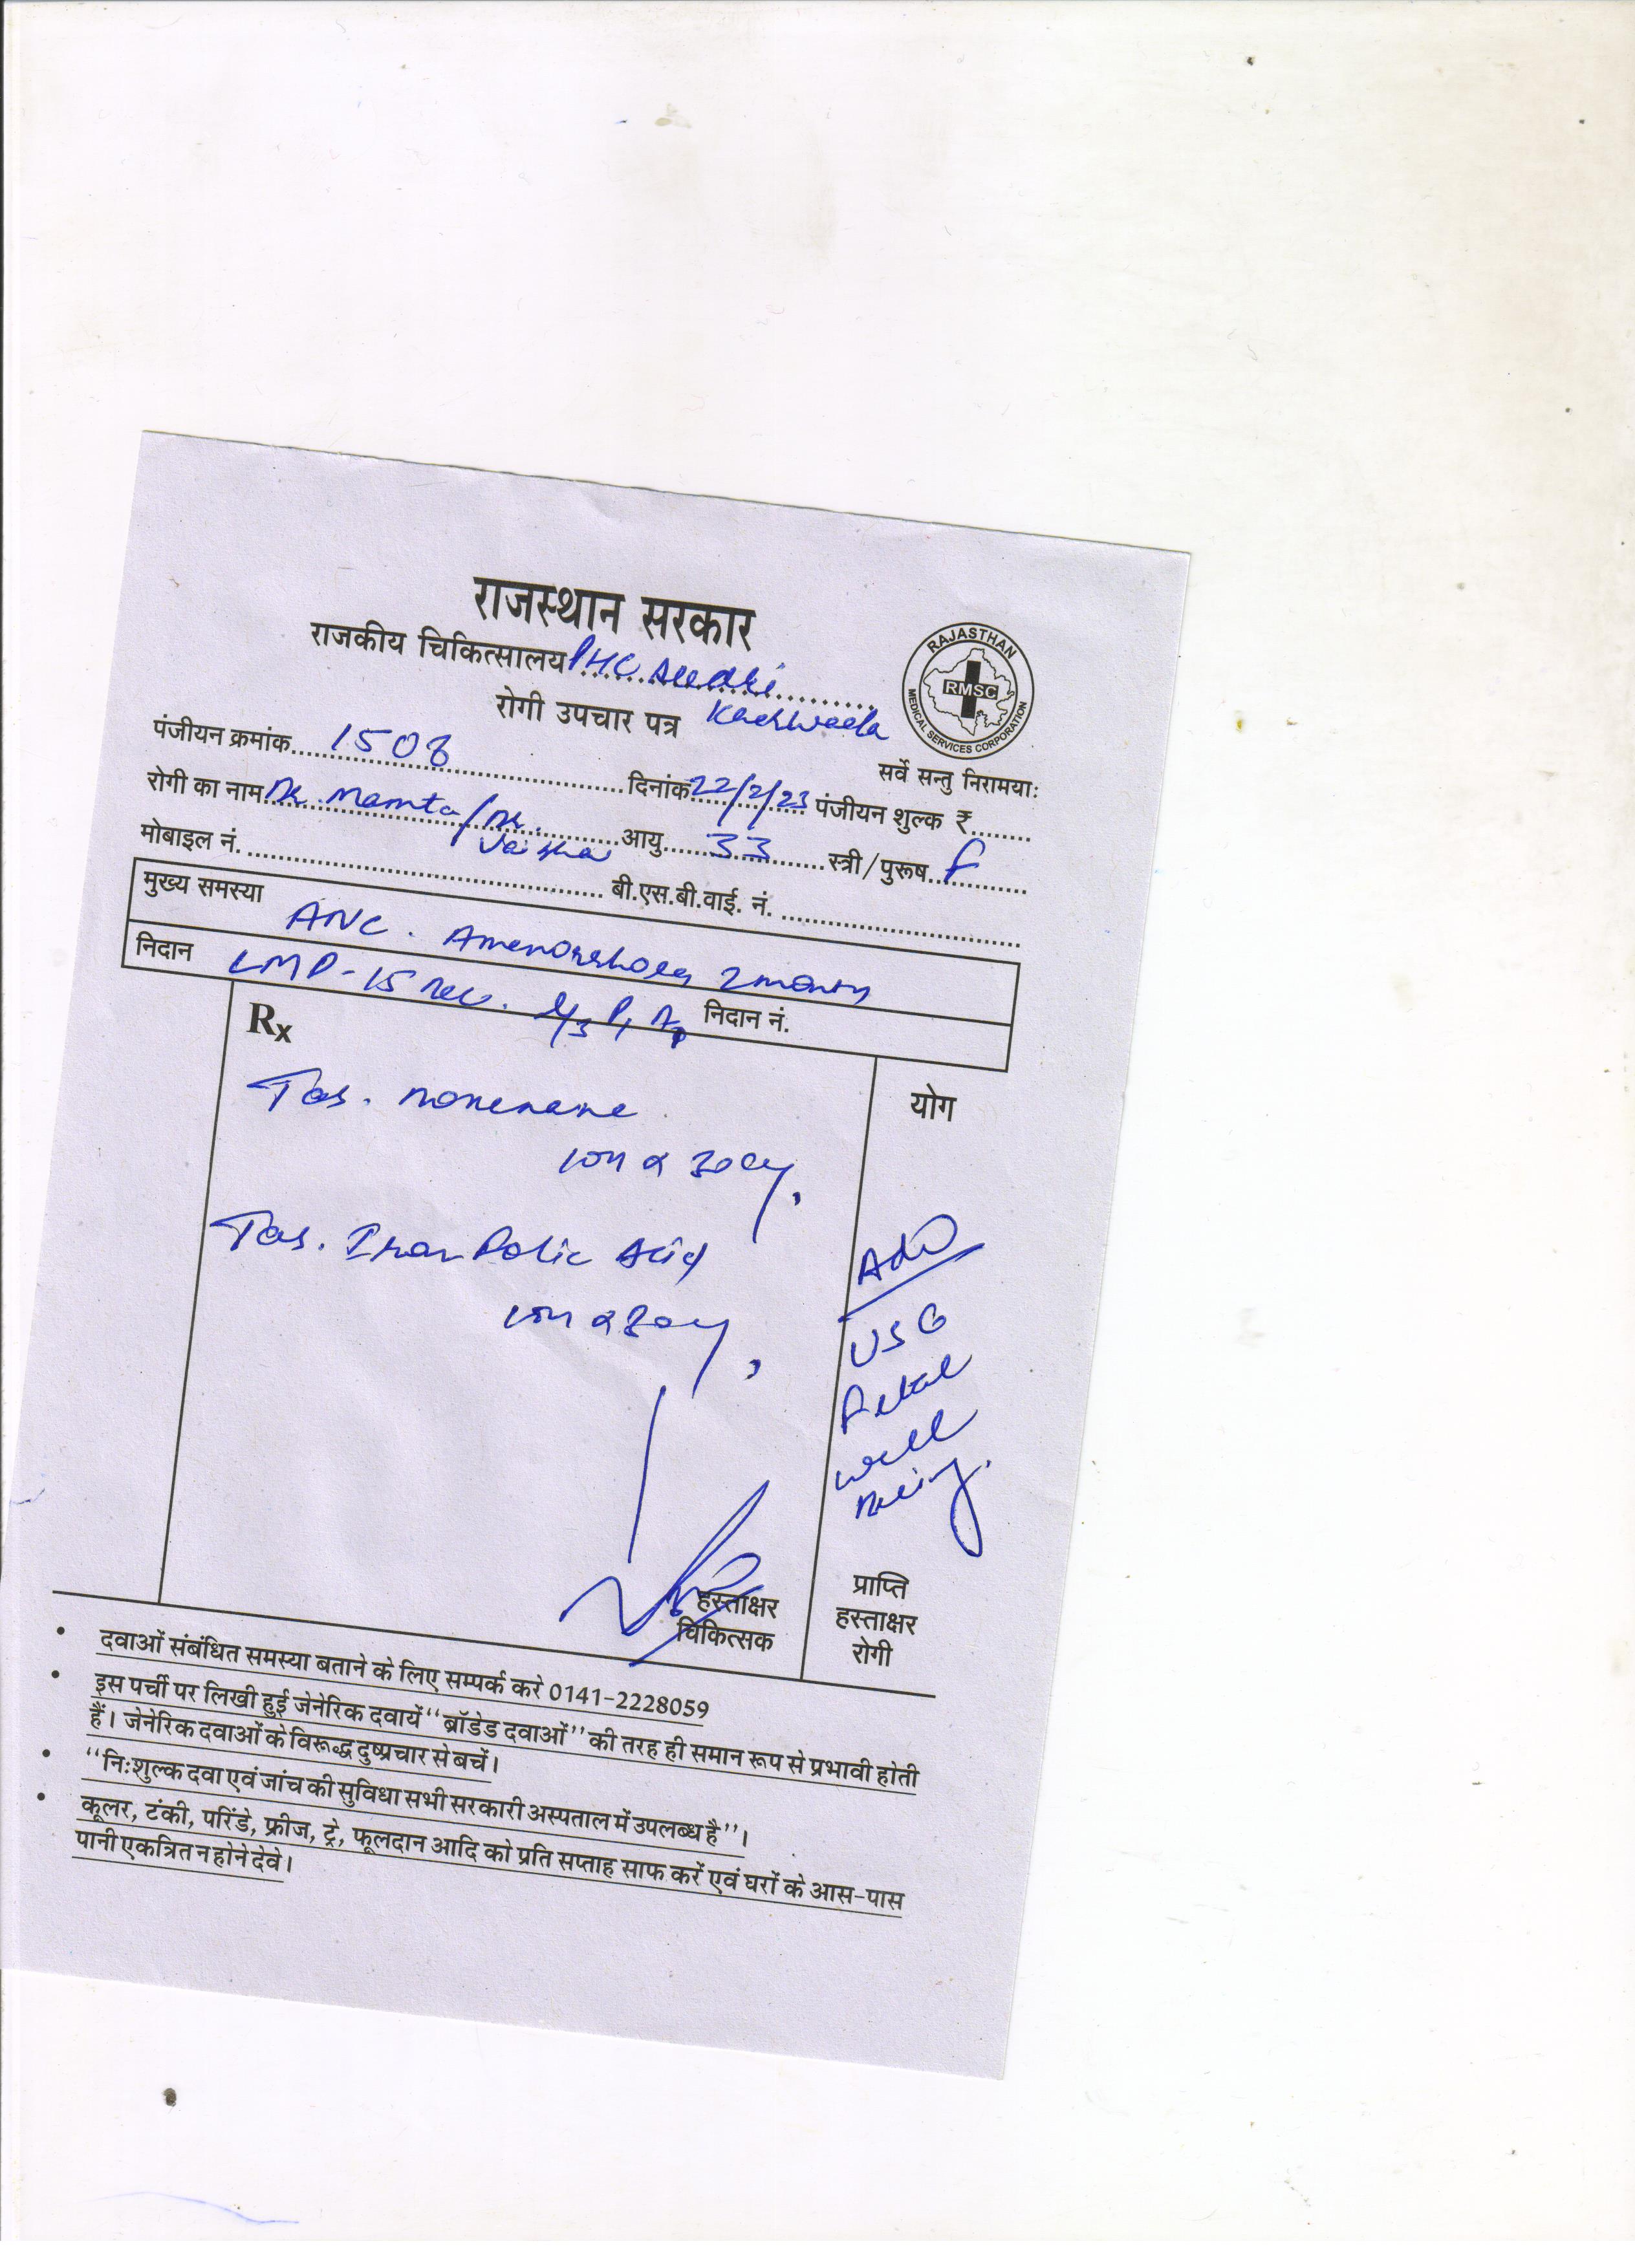 राजस्थान सरकार
राजकीय चिकित्सालय PHC
रोगी उपचार पत्र
RAJASTHAN
RMSC
MEDICAL SERVICES CORPORATION
सर्वे सन्तु निरामयाः
पंजीयन क्रमांक 1508 दिनांक 22/2/23 पंजीयन शुल्क ₹
रोगी का नाम Mamta / आयु 33 स्त्री/पुरूष F
मोबाइल नं. बी.एस.बी.वाई. नं.
मुख्य समस्या ANC. Amenorrhoea 2 month
निदान LMP - 15 निदान नं.
Rx
योग
Tab.
Tab. Iron Folic Acid
Adv
USG
Fetal
well
Being.
हस्ताक्षर
चिकित्सक
प्राप्ति
हस्ताक्षर
रोगी
• दवाओं संबंधित समस्या बताने के लिए सम्पर्क करे 0141-2228059
• इस पर्ची पर लिखी हुई जेनेरिक दवायें "ब्रॉडेड दवाओं" की तरह ही समान रूप से प्रभावी होती
हैं। जेनेरिक दवाओं के विरूद्ध दुष्प्रचार से बचें।
• "निःशुल्क दवा एवं जांच की सुविधा सभी सरकारी अस्पताल में उपलब्ध है"।
• कूलर, टंकी, परिंडे, फ्रीज, ट्रे, फूलदान आदि को प्रति सप्ताह साफ करें एवं घरों के आस-पास
पानी एकत्रित न होने देवे।